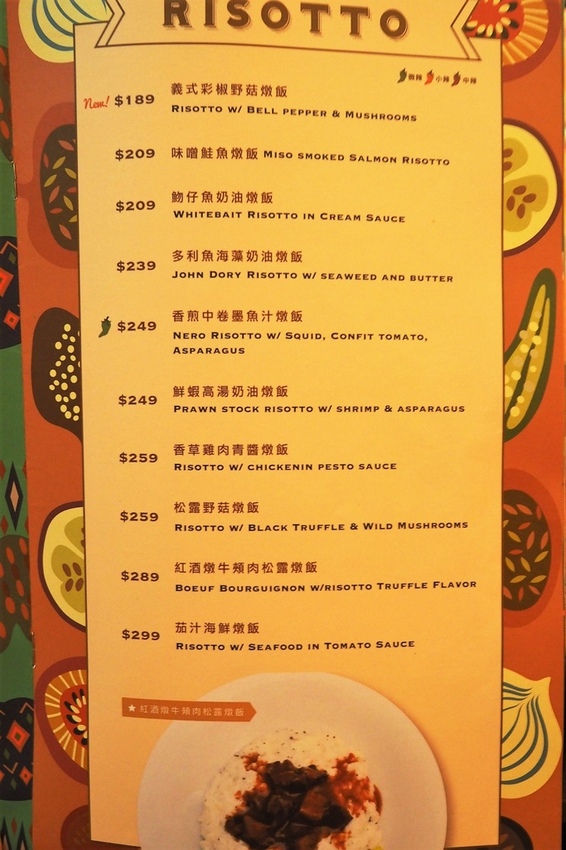 RISOTTO
微辣 小辣 中辣
New! $189 義式彩椒野菇燉飯
RISOTTO W/ BELL PEPPER & MUSHROOMS
$209 味噌鮭魚燉飯 MISO SMOKED SALMON RISOTTO
$209 魩仔魚奶油燉飯
WHITEBAIT RISOTTO IN CREAM SAUCE
$239 多利魚海藻奶油燉飯
JOHN DORY RISOTTO W/ SEAWEED AND BUTTER
$249 香煎中卷墨魚汁燉飯
NERO RISOTTO W/ SQUID, CONFIT TOMATO,
ASPARAGUS
$249 鮮蝦高湯奶油燉飯
PRAWN STOCK RISOTTO W/ SHRIMP & ASPARAGUS
$259 香草雞肉青醬燉飯
RISOTTO W/ CHICKENIN PESTO SAUCE
$259 松露野菇燉飯
RISOTTO W/ BLACK TRUFFLE & WILD MUSHROOMS
$289 紅酒燉牛頰肉松露燉飯
BOEUF BOURGUIGNON W/RISOTTO TRUFFLE FLAVOR
$299 茄汁海鮮燉飯
RISOTTO W/ SEAFOOD IN TOMATO SAUCE
★ 紅酒燉牛頰肉松露燉飯